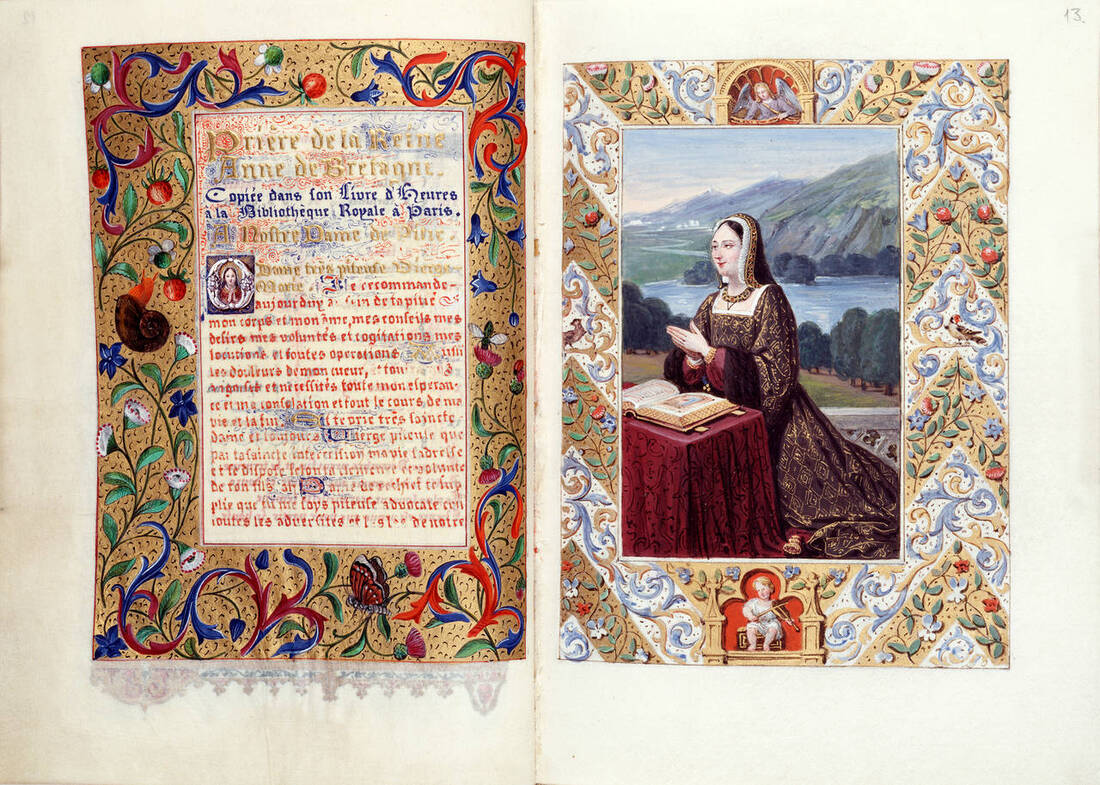 Prière de la Reine
Anne de Bretagne.
Copiée dans son Livre d'Heures
à la Bibliothèque Royale à Paris.
A Nostre Dame de Pitié.
Dame très piteuse Vierge
Marie Je recommande
aujourduy
mon corps et mon âme, mes conseils mes
desirs mes voluntés et cogitations mes
locutions et toutes operations
les douleurs de mon cueur,
angoisses et necessités toute mon esperan-
ce et ma consolation et tout le cours de ma
vie et la fin te prie très saincte
dame et toujours Vierge piteuse que
par ta saincte intercession ma vie s'adresse
et se dispose selon la clemence et volunte
de ton fils de rechief te sup
plie que tu me soys piteuse advocate en
toutes les adversités et de notre
13.